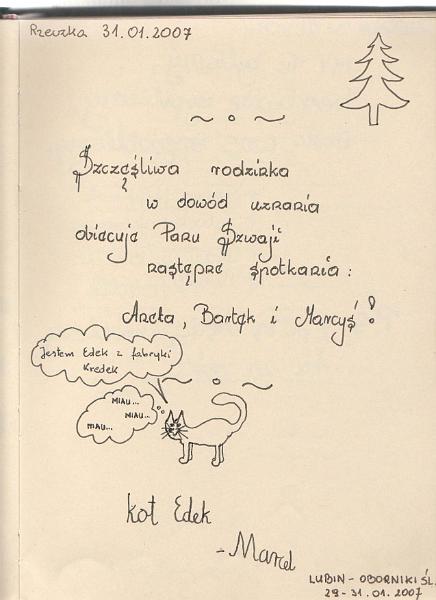 Rzeczka 31.01.2007
Szczęśliwa rodzinka
w dowód uznania
obiecuje Panu Szwaji
następne spotkania:
Aneta, Bartek i Marcyś!
Jestem Edek z fabryki
Kredek
MIAU...
MIAU...
MIAU...
kot Edek
- Marcel
LUBIN - OBORNIKI ŚL.
29-31.01.2007